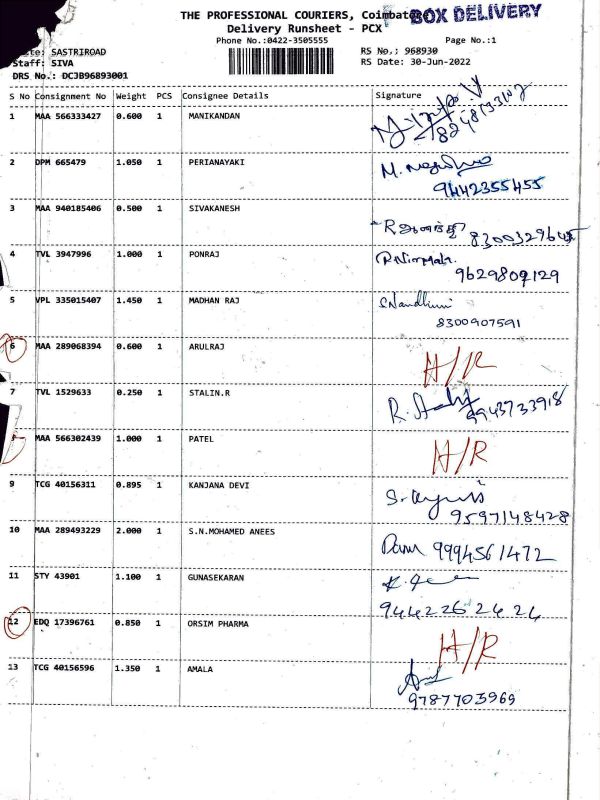 THE PROFESSIONAL COURIERS, Coimbatore
BOX DELIVERY
Delivery Runsheet - PCX
Phone No.:0422-3505555
Page No.:1
SASTRIROAD
RS No.: 968930
Staff: SIVA
RS Date: 30-Jun-2022
DRS No.: DCJB96893001
S No Consignment No Weight PCS Consignee Details Signature
1 MAA 566333427 0.600 1 MANIKANDAN
8248133107
2 DPM 665479 1.050 1 PERIANAYAKI
9442355455
3 MAA 940185406 0.500 1 SIVAKANESH
8300329645
4 TVL 3947996 1.000 1 PONRAJ
9629809129
5 VPL 335015407 1.450 1 MADHAN RAJ S.Nandhini
8300907591
6 MAA 289068394 0.600 1 ARULRAJ H/R
7 TVL 1529633 0.250 1 STALIN.R
9943733918
8 MAA 566302439 1.000 1 PATEL H/R
9 TCG 40156311 0.895 1 KANJANA DEVI
9597148428
10 MAA 289493229 2.000 1 S.N.MOHAMED ANEES
9994561472
11 STY 43901 1.100 1 GUNASEKARAN
9442262424
12 EDQ 17396761 0.850 1 ORSIM PHARMA H/R
13 TCG 40156596 1.350 1 AMALA
9787703969